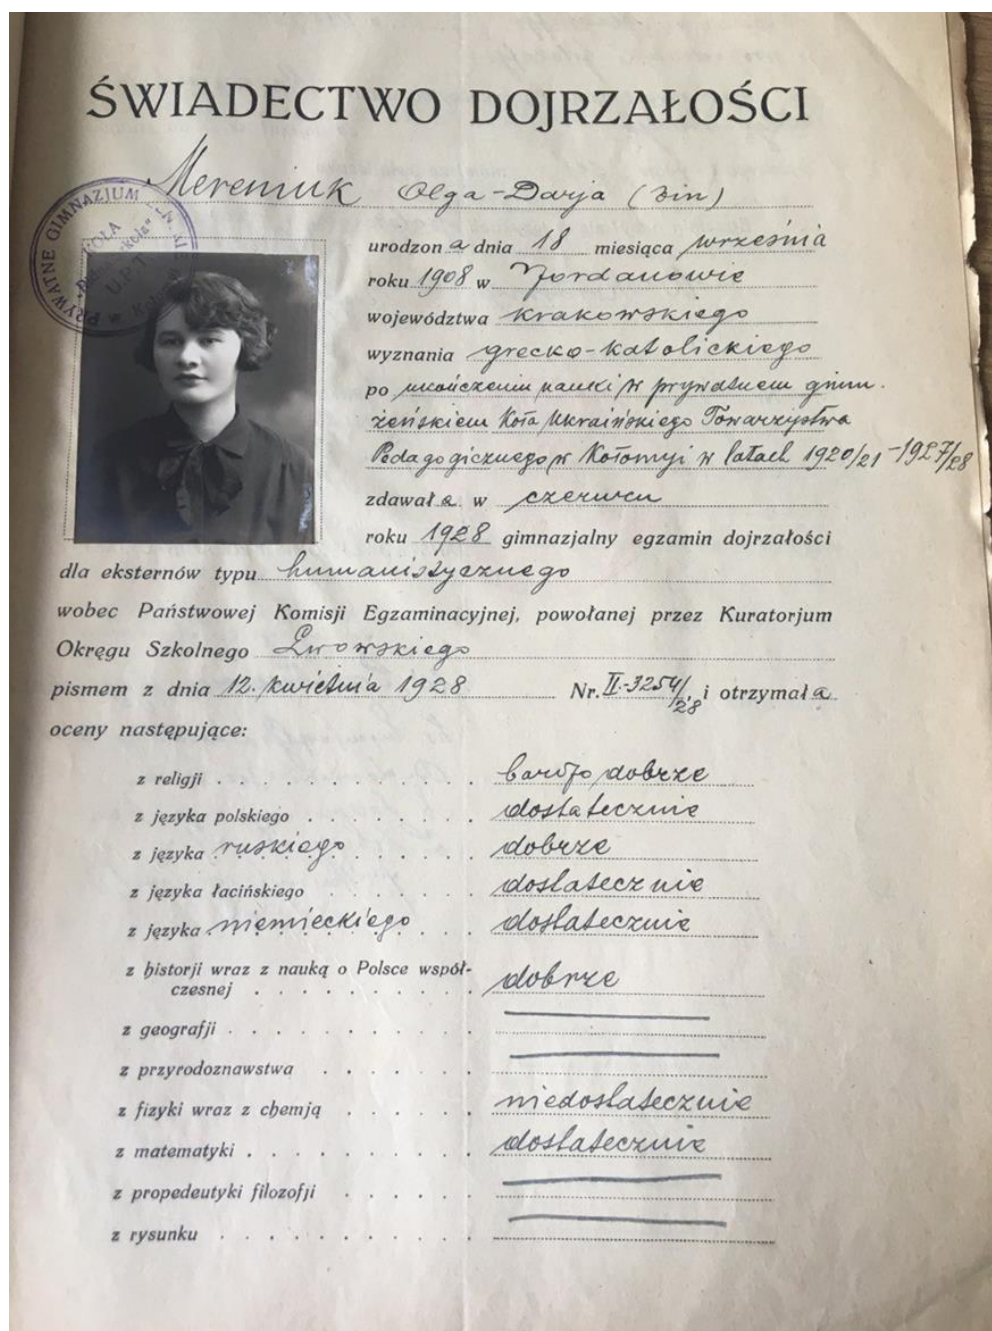 ŚWIADECTWO DOJRZAŁOŚCI
Mereniuk Olga-Darja (2im)
PRYWATNE GIMNAZJUM ŻEŃ
KOŁA
U.P.T.
urodzona dnia 18 miesiąca września
roku 1908 w Jordanowie
województwa krakowskiego
wyznania grecko-katolickiego
po ukończeniu nauki w prywatnem gimn.
żeńskiem Koła Ukraińskiego Towarzystwa
Pedagogicznego w Kołomyi w latach 1920/21-1927/28
zdawała w czerwcu
roku 1928 gimnazjalny egzamin dojrzałości
dla eksternów typu humanistycznego
wobec Państwowej Komisji Egzaminacyjnej, powołanej przez Kuratorjum
Okręgu Szkolnego Lwowskiego
pismem z dnia 12. kwietnia 1928 Nr. II.-3254/28, i otrzymała
oceny następujące:
z religji . . . . . . . . . . . . bardzo dobrze
z języka polskiego . . . . . . . dostatecznie
z języka ruskiego . . . . . . dobrze
z języka łacińskiego . . . . . . dostatecznie
z języka niemieckiego . . . dostatecznie
z historji wraz z nauką o Polsce współ-
czesnej . . . . . . . . . . dobrze
z geografji . . . . . . . . . . .
z przyrodoznawstwa . . . . . . .
z fizyki wraz z chemją . . . . . . niedostatecznie
z matematyki . . . . . . . . . . dostatecznie
z propedeutyki filozofji . . . . . .
z rysunku . . . . . . . . . . .